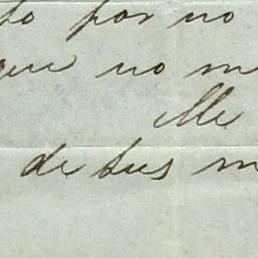 to por no
que no m
Me
de sus m